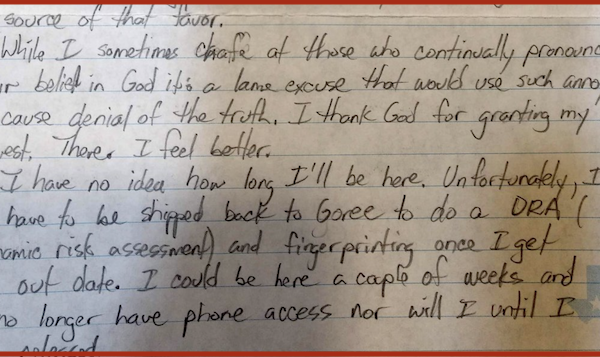 source of that favor.
While I sometimes chafe at those who continually pronounc
belief in God it's a lame excuse that would use such anno
cause denial of the truth. I thank God for granting my
est. There. I feel better.
I have no idea how long I'll be here. Unfortunately, I
have to be shipped back to Goree to do a DRA (
amic risk assessment) and fingerprinting once I get
out date. I could be here a couple of weeks and
no longer have phone access nor will I until I